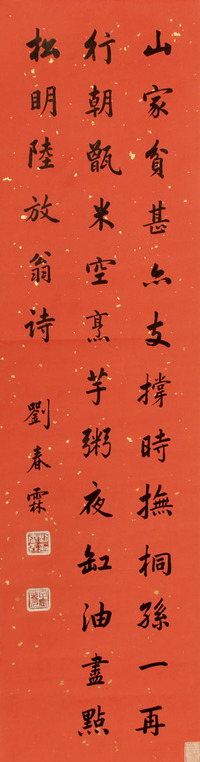 山家貧甚亦支撐時撫桐孫一再
行朝甑米空烹芋粥夜缸油盡點
松明陸放翁詩
劉春霖